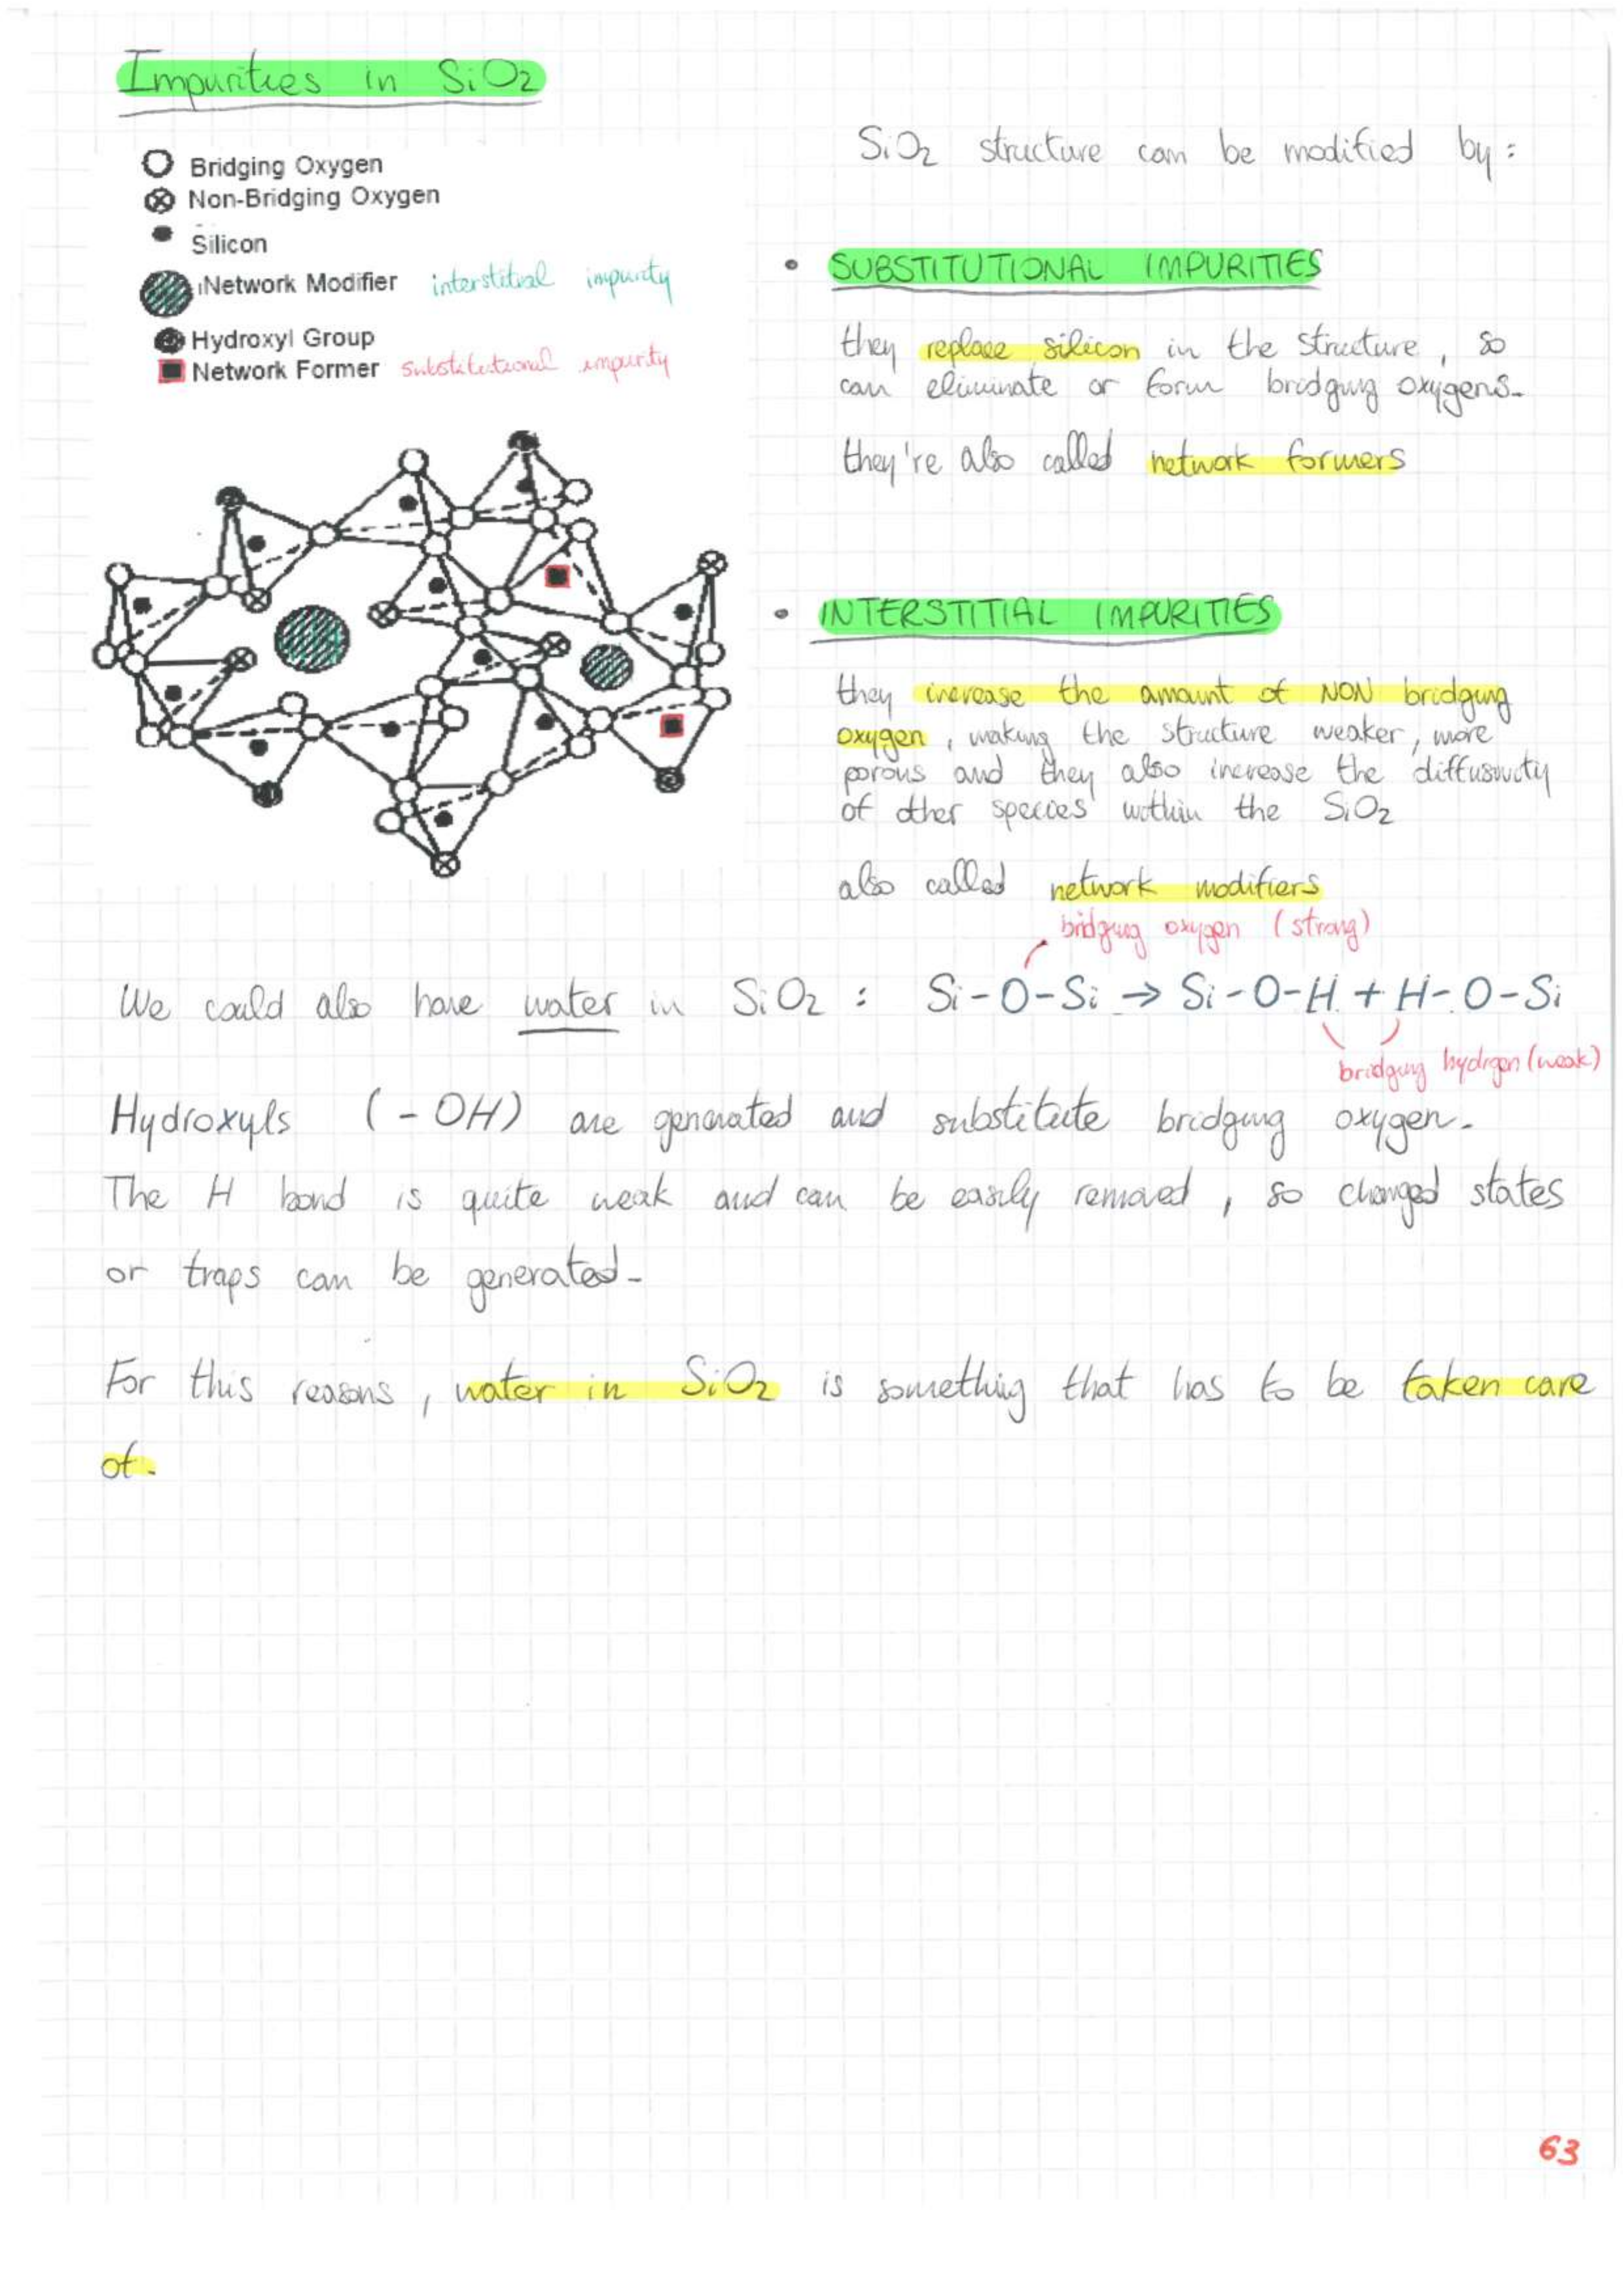 Impurities in SiO2
Bridging Oxygen
Non-Bridging Oxygen
Silicon
Network Modifier interstitial impurity
Hydroxyl Group
Network Former substitutional impurity
SiO2 structure can be modified by:
• SUBSTITUTIONAL IMPURITIES
they replace silicon in the structure, so
can eliminate or form bridging oxygens.
they're also called network formers
• INTERSTITIAL IMPURITIES
they increase the amount of NON bridging
oxygen, making the structure weaker, more
porous and they also increase the diffusivity
of other species within the SiO2
also called network modifiers
bridging oxygen (strong)
We could also have water in SiO2 : Si-O-Si → Si-O-H + H-O-Si
bridging hydrgen (weak)
Hydroxyls (-OH) are generated and substitute bridging oxygen.
The H bond is quite weak and can be easily removed, so changed states
or traps can be generated.
For this reasons, water in SiO2 is something that has to be taken care
of.
63